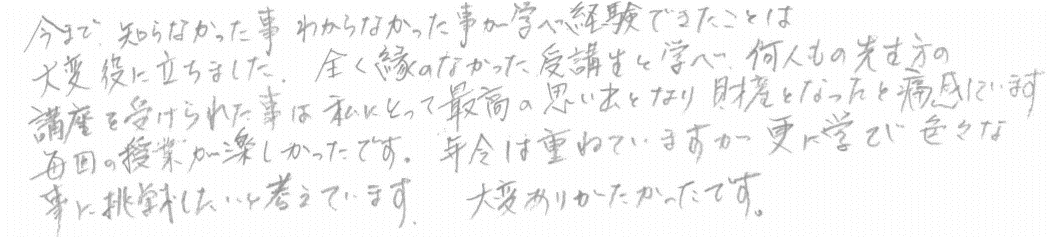 今まで、知らなかった事 わからなかった事が学べ経験できたことは
大変役に立ちました。全く縁のなかった受講生と学べ、何人もの先生方の
講座を受けられた事は私にとって最高の思い出となり財産となったと痛感しています
毎回の授業が楽しかったです。年令は重ねていますが更に学び色々な
事に挑戦したいと考えています。 大変ありがたかったです。